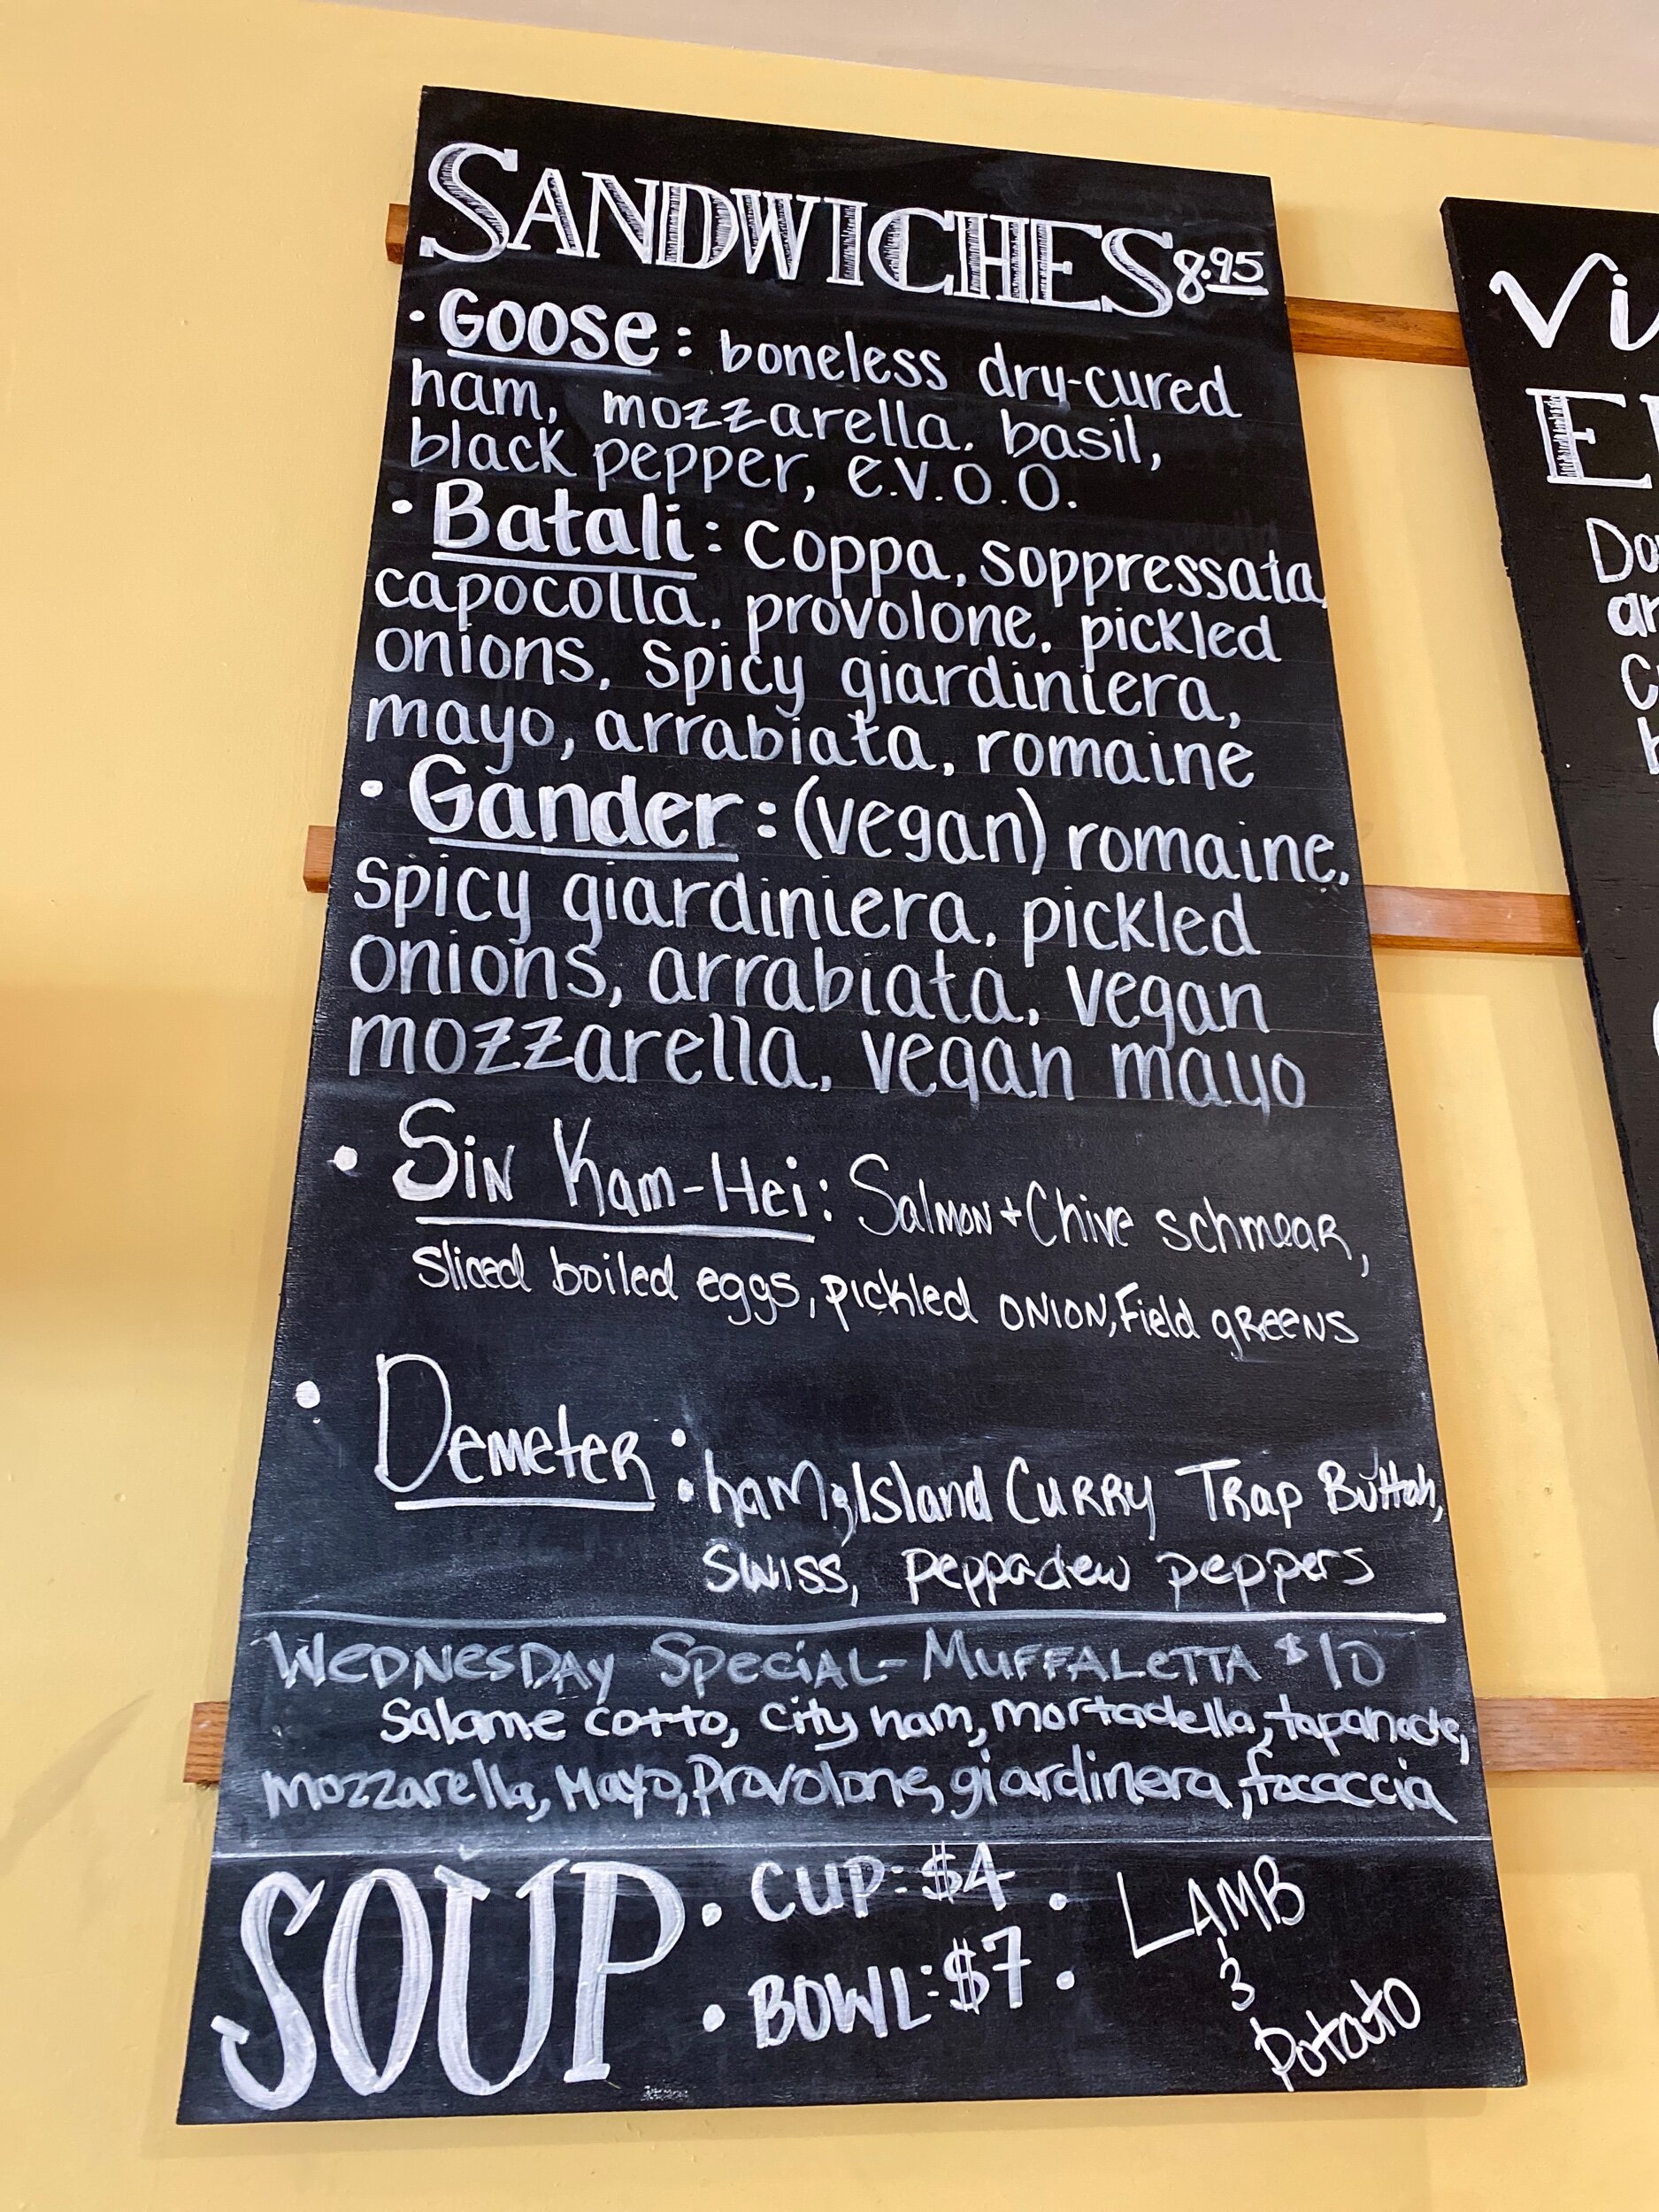 SANDWICHES 8.95
• Goose: boneless dry-cured
ham, mozzarella, basil,
black pepper, e.v.o.o.
• Batali: coppa, soppressata,
capocolla, provolone, pickled
onions, spicy giardiniera,
mayo, arrabiata, romaine
• Gander: (vegan) romaine,
spicy giardiniera, pickled
onions, arrabiata, vegan
mozzarella, vegan mayo
• Sin Kam-Hei: Salmon + Chive schmear,
sliced boiled eggs, pickled onion, Field greens
• Demeter: ham, Island Curry Trap Buttah,
Swiss, peppadew peppers
Wednesday Special - Muffaletta $10
Salame cotto, city ham, mortadella, tapanade,
mozzarella, Mayo, Provolone, giardinera, focaccia
SOUP • CUP: $4 •
• BOWL: $7 •
LAMB
&
Potato
Vi
E
Do
an
C
b